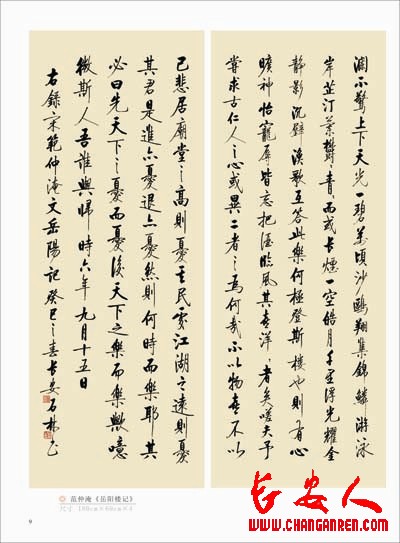 瀾不驚上下天光一碧萬頃沙鷗翔集錦鱗游泳
岸芷汀蘭鬱〻青〻而或长煙一空皓月千里浮光耀金
靜影沉璧漁歌互答此樂何極登斯樓也則有心
曠神怡寵辱皆忘把酒臨風其喜洋〻者矣嗟夫予
嘗求古仁人之心或異二者之為何哉不以物喜不以
己悲居廟堂之高則憂其民處江湖之遠則憂
其君是進亦憂退亦憂然則何時而樂耶其
必曰先天下之憂而憂後天下之樂而樂歟噫
微斯人吾誰與歸時六年九月十五日
右錄宋範仲淹文岳陽記癸巳之春长安石林
范仲淹《岳阳楼记》
尺寸 180cm×60cm×4
9
长安人
WWW.CHANGANREN.COM